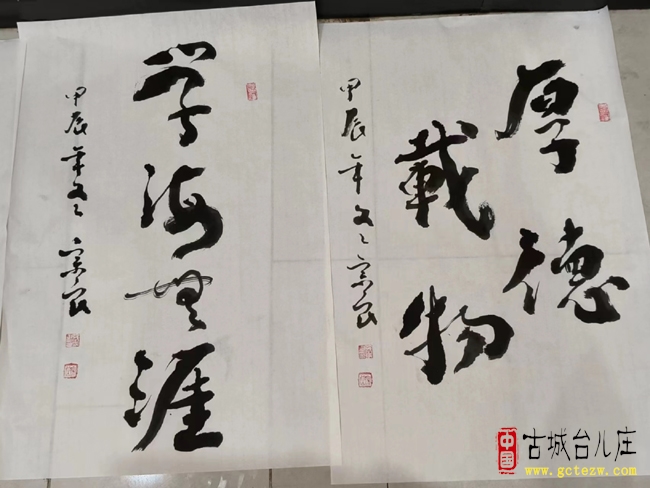 厚德
載物
甲辰年文之宗民
學海無涯
甲辰年文之宗民
中国
古城台儿庄
www.gctezw.com